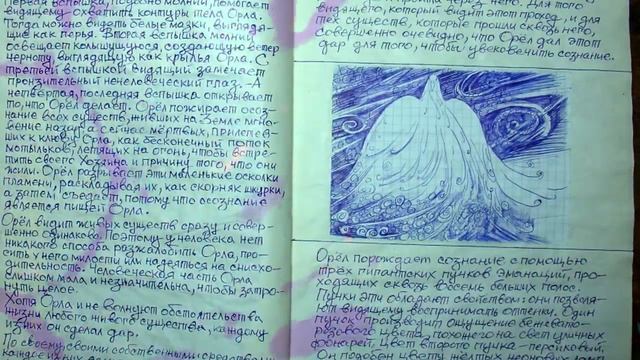 Первая вспышка, подобно молнии, помогает
видящему охватить контуры тела Орла.
Тогда можно видеть белые мазки, выглядя-
щие как перья. Вторая вспышка молнии
освещает колышущуюся, создающую ветер
черноту, выглядящую как крылья Орла. С
третьей вспышкой видящий замечает
пронзительный нечеловеческий глаз. А
четвёртая, последняя вспышка открывает
то, что Орёл делает. Орёл пожирает осоз-
нание всех существ, живших на Земле мгно-
вение назад, а сейчас мёртвых, прилетев-
ших к клюву Орла, как бесконечный поток
мотыльков, летящих на огонь, чтобы встре-
тить своего Хозяина и причину того, что они
жили. Орёл разрывает эти маленькие осколки
пламени, раскладывая их, как скорняк шкурки,
а затем съедает, потому что осознание
является пищей Орла.
Орёл видит живых существ сразу и совер-
шенно одинаково. Поэтому у человека нет
никакого способа разжалобить Орла, про-
сить у него милости или надеяться на снисхо-
дительность. Человеческая часть Орла
слишком мала и незначительна, чтобы затро-
нуть целое.
Хотя Орла и не волнуют обстоятельства
жизни любого живого существа, каждому
из них он сделал дар.
По своему собственными средствами
через него. Для того
видящего, который видит этот проход, и для
тех существ, которые прошли сквозь него,
совершенно очевидно, что Орёл дал этот
дар для того, чтобы увековечить сознание.
Орёл порождает сознание с помощью
трёх гигантских пучков эманаций, про-
ходящих сквозь восемь больших полос.
Пучки эти обладают свойством: они позволя-
ют видящему воспринимать оттенки. Один
пучок производит ощущение бежевато-
розового цвета, похожего на свет уличных
фонарей. Цвет второго пучка - персиковый.
Он подобен цвету